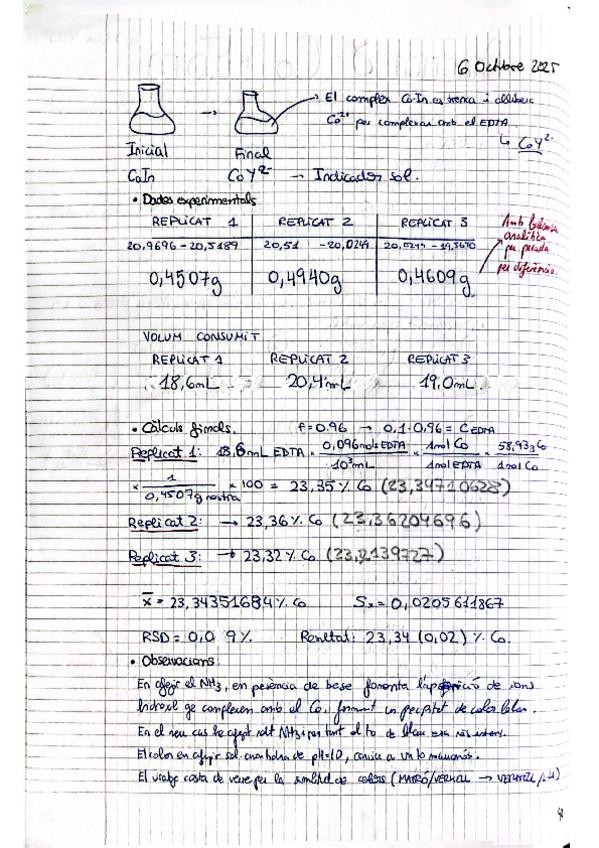 6 Octubre 2025
→ El complex CoIn es trenca i allibera
Co²⁺ per complexar amb el EDTA.
↳ CoY²⁻
Inicial Final
CoIn CoY²⁻ → Indicador sol.
• Dades experimentals
REPLICAT 1 REPLICAT 2 REPLICAT 3
20,9696 - 20,5189 20,51 - 20,0249 20,0249 - 19,5640
0,4507g 0,4940g 0,4609g
Amb balança
analítica
per pesada
per diferència.
VOLUM CONSUMIT
REPLICAT 1 REPLICAT 2 REPLICAT 3
18,6mL 20,4mL 19,0mL.
• Càlculs finals. f=0.96 → 0,1·0,96 = C EDTA
Replicat 1: 18,6mL EDTA × 0,096mols EDTA / 10³mL × 1mol Co / 1mol EDTA × 58,933g Co / 1mol Co
× 1 / 0,4507g mostra × 100 = 23,35 % Co (23,34710628)
Replicat 2: → 23,36 % Co (23,36204696)
Replicat 3: → 23,32 % Co (23,2139727)
x̄ = 23,34351684 % Co Sx = 0,0205611867
RSD = 0,09 % Resultat: 23,34 (0,02) % Co.
• Observacions:
En afegir el NH₃, en presència de base fomenta l'aparició de ions
hidroxil que complexen amb el Co, formant un precipitat de color blau.
En el meu cas he afegit molt NH₃ i per tant el to de blau era més intens.
El color en afegir sol. amortidora de pH=10, canvia a un to
El viratge costa de veure per la similitud de colors (MARRÓ/VERMELL →